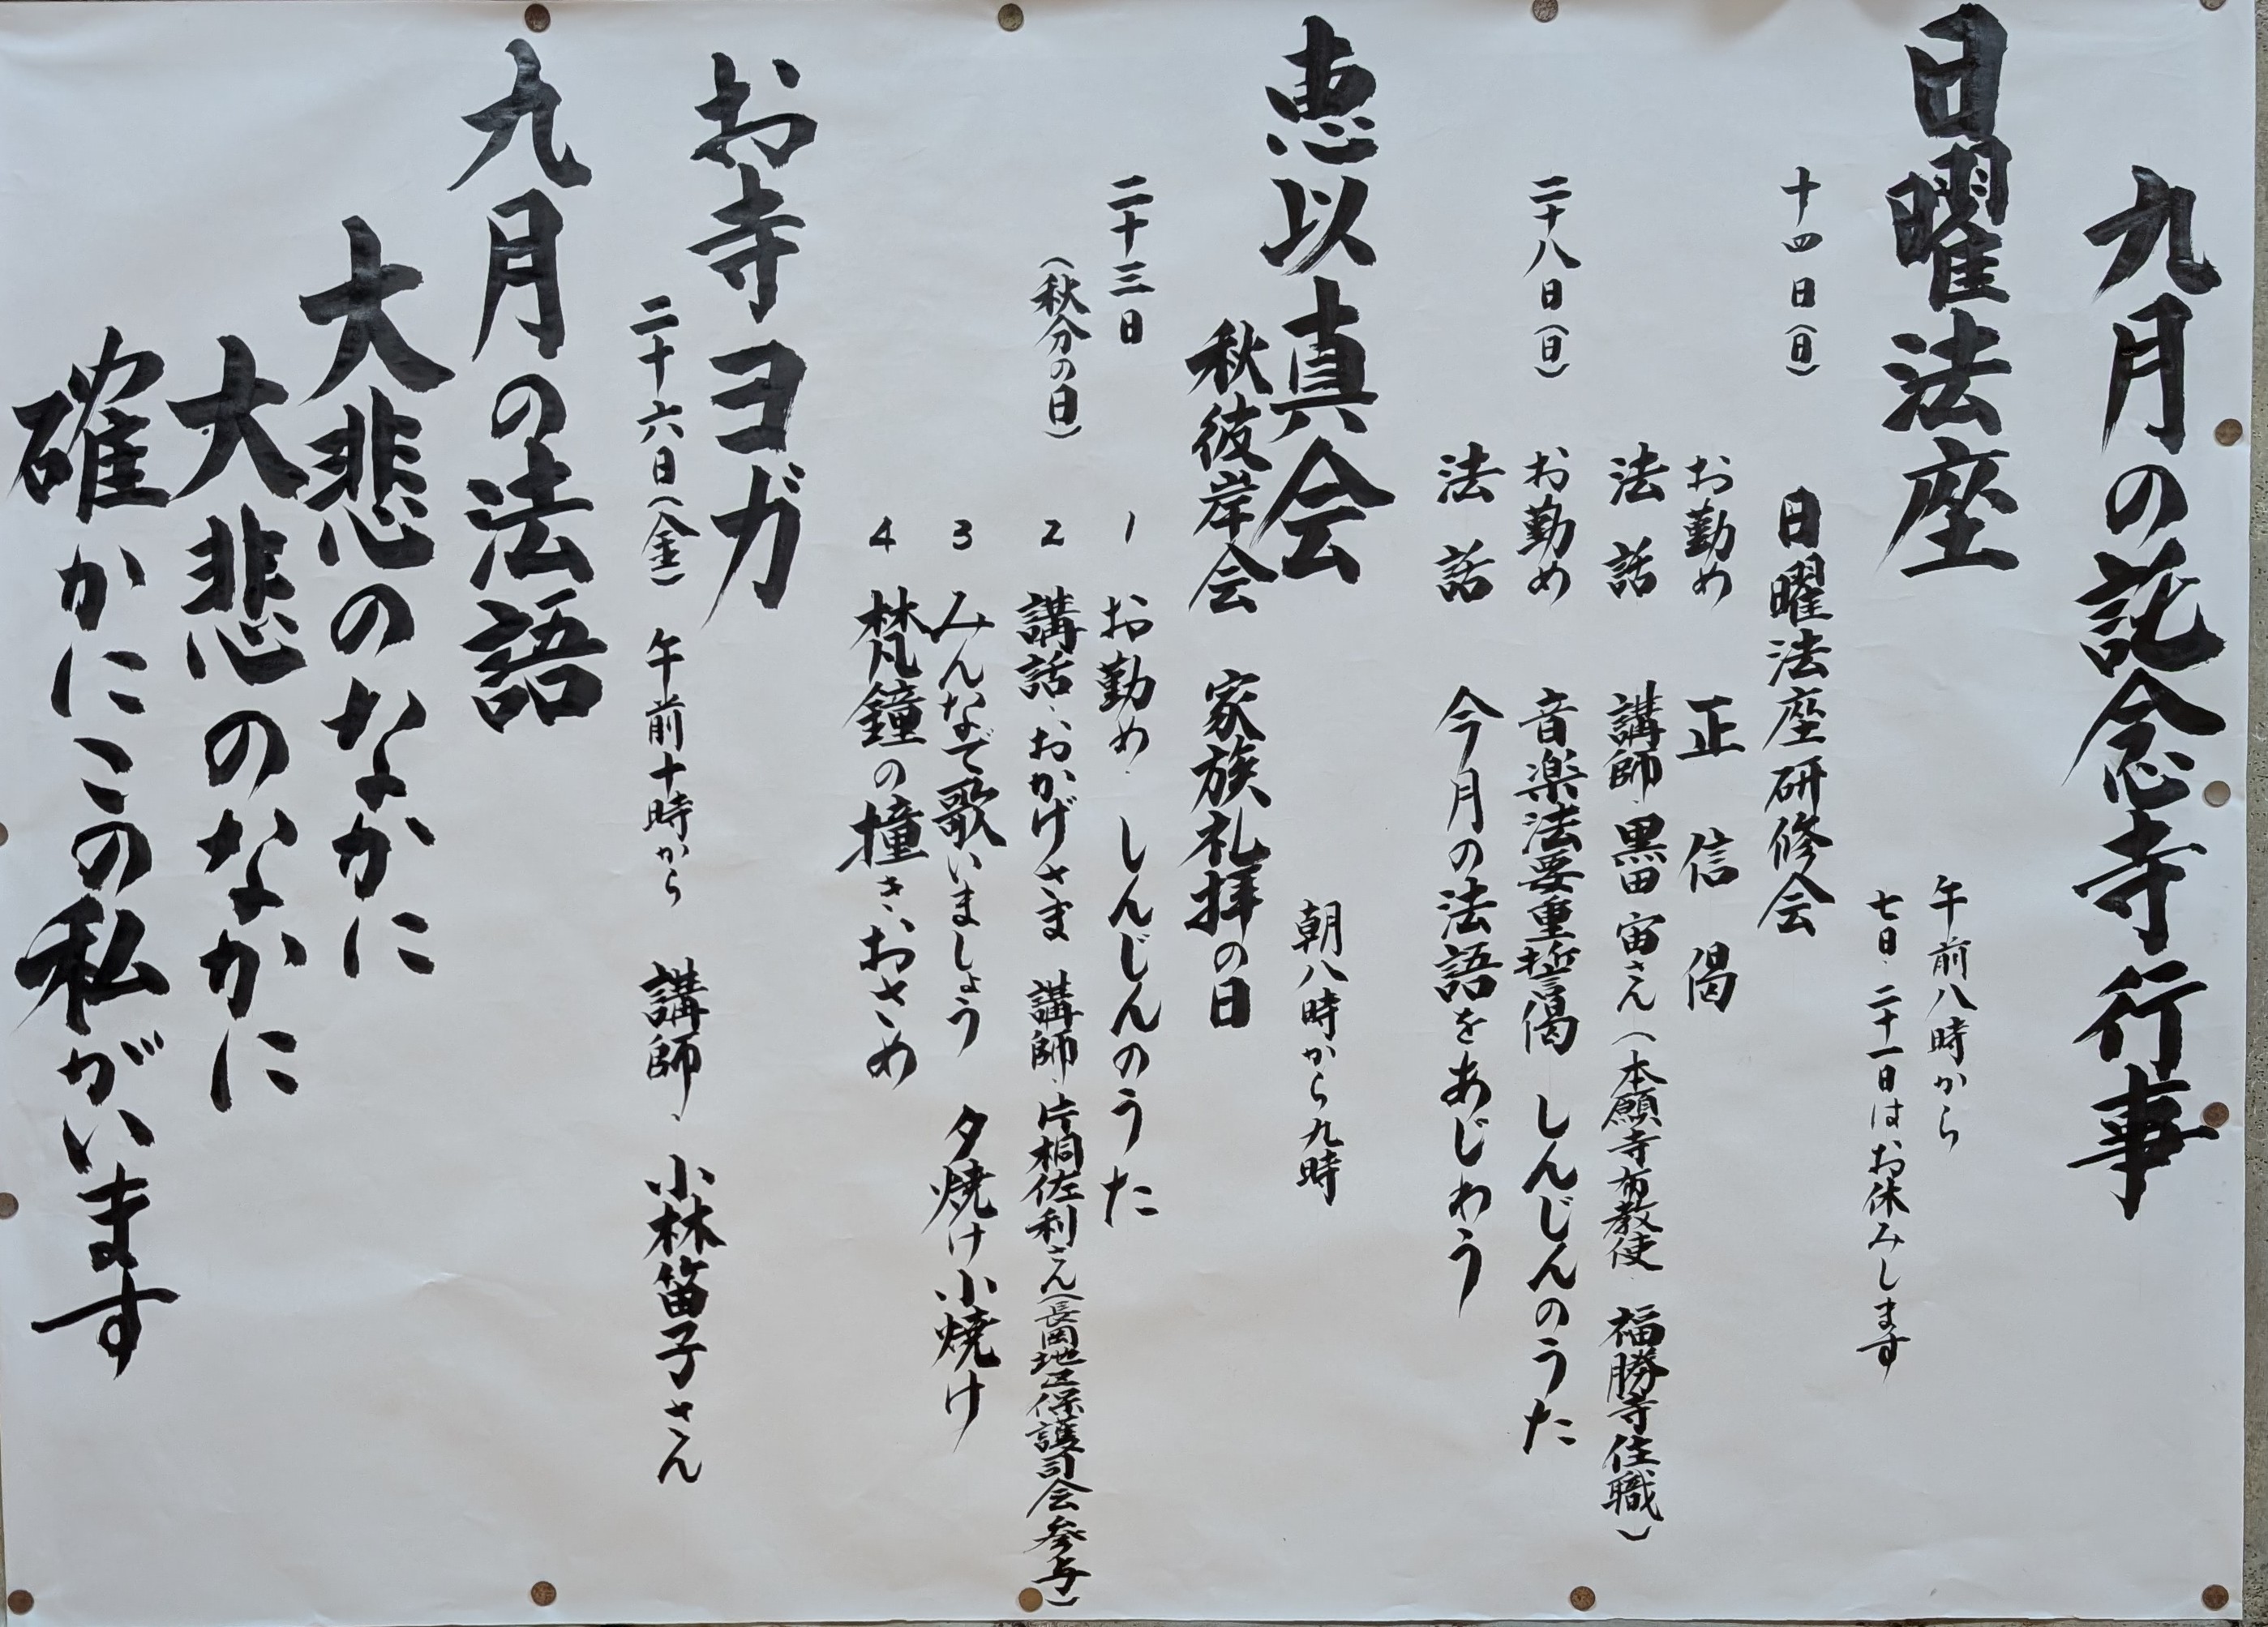 九月の託念寺行事
日曜法座
午前八時から
七日、二十一日はお休みします
十四日(日)
日曜法座研修会
お勤め 正信偈
法話 講師、黒田宙さん(本願寺布教使、福勝寺住職)
二十八日(日)
お勤め 音楽法要重誓偈 しんじんのうた
法話 今月の法語をあじわう
恵以真会
朝八時から九時
秋彼岸会 家族礼拝の日
二十三日
(秋分の日)
1 お勤め、しんじんのうた
2 講話、おかげさま 講師、片桐佐利さん(長岡地区保護司会参与)
3 みんなで歌いましょう 夕焼け小焼け
4 梵鐘の撞き、おさめ
お寺ヨガ
二十六日(金) 午前十時から 講師、小林笛子さん
九月の法語
大悲のなかに
大悲のなかに
確かにこの私がいます